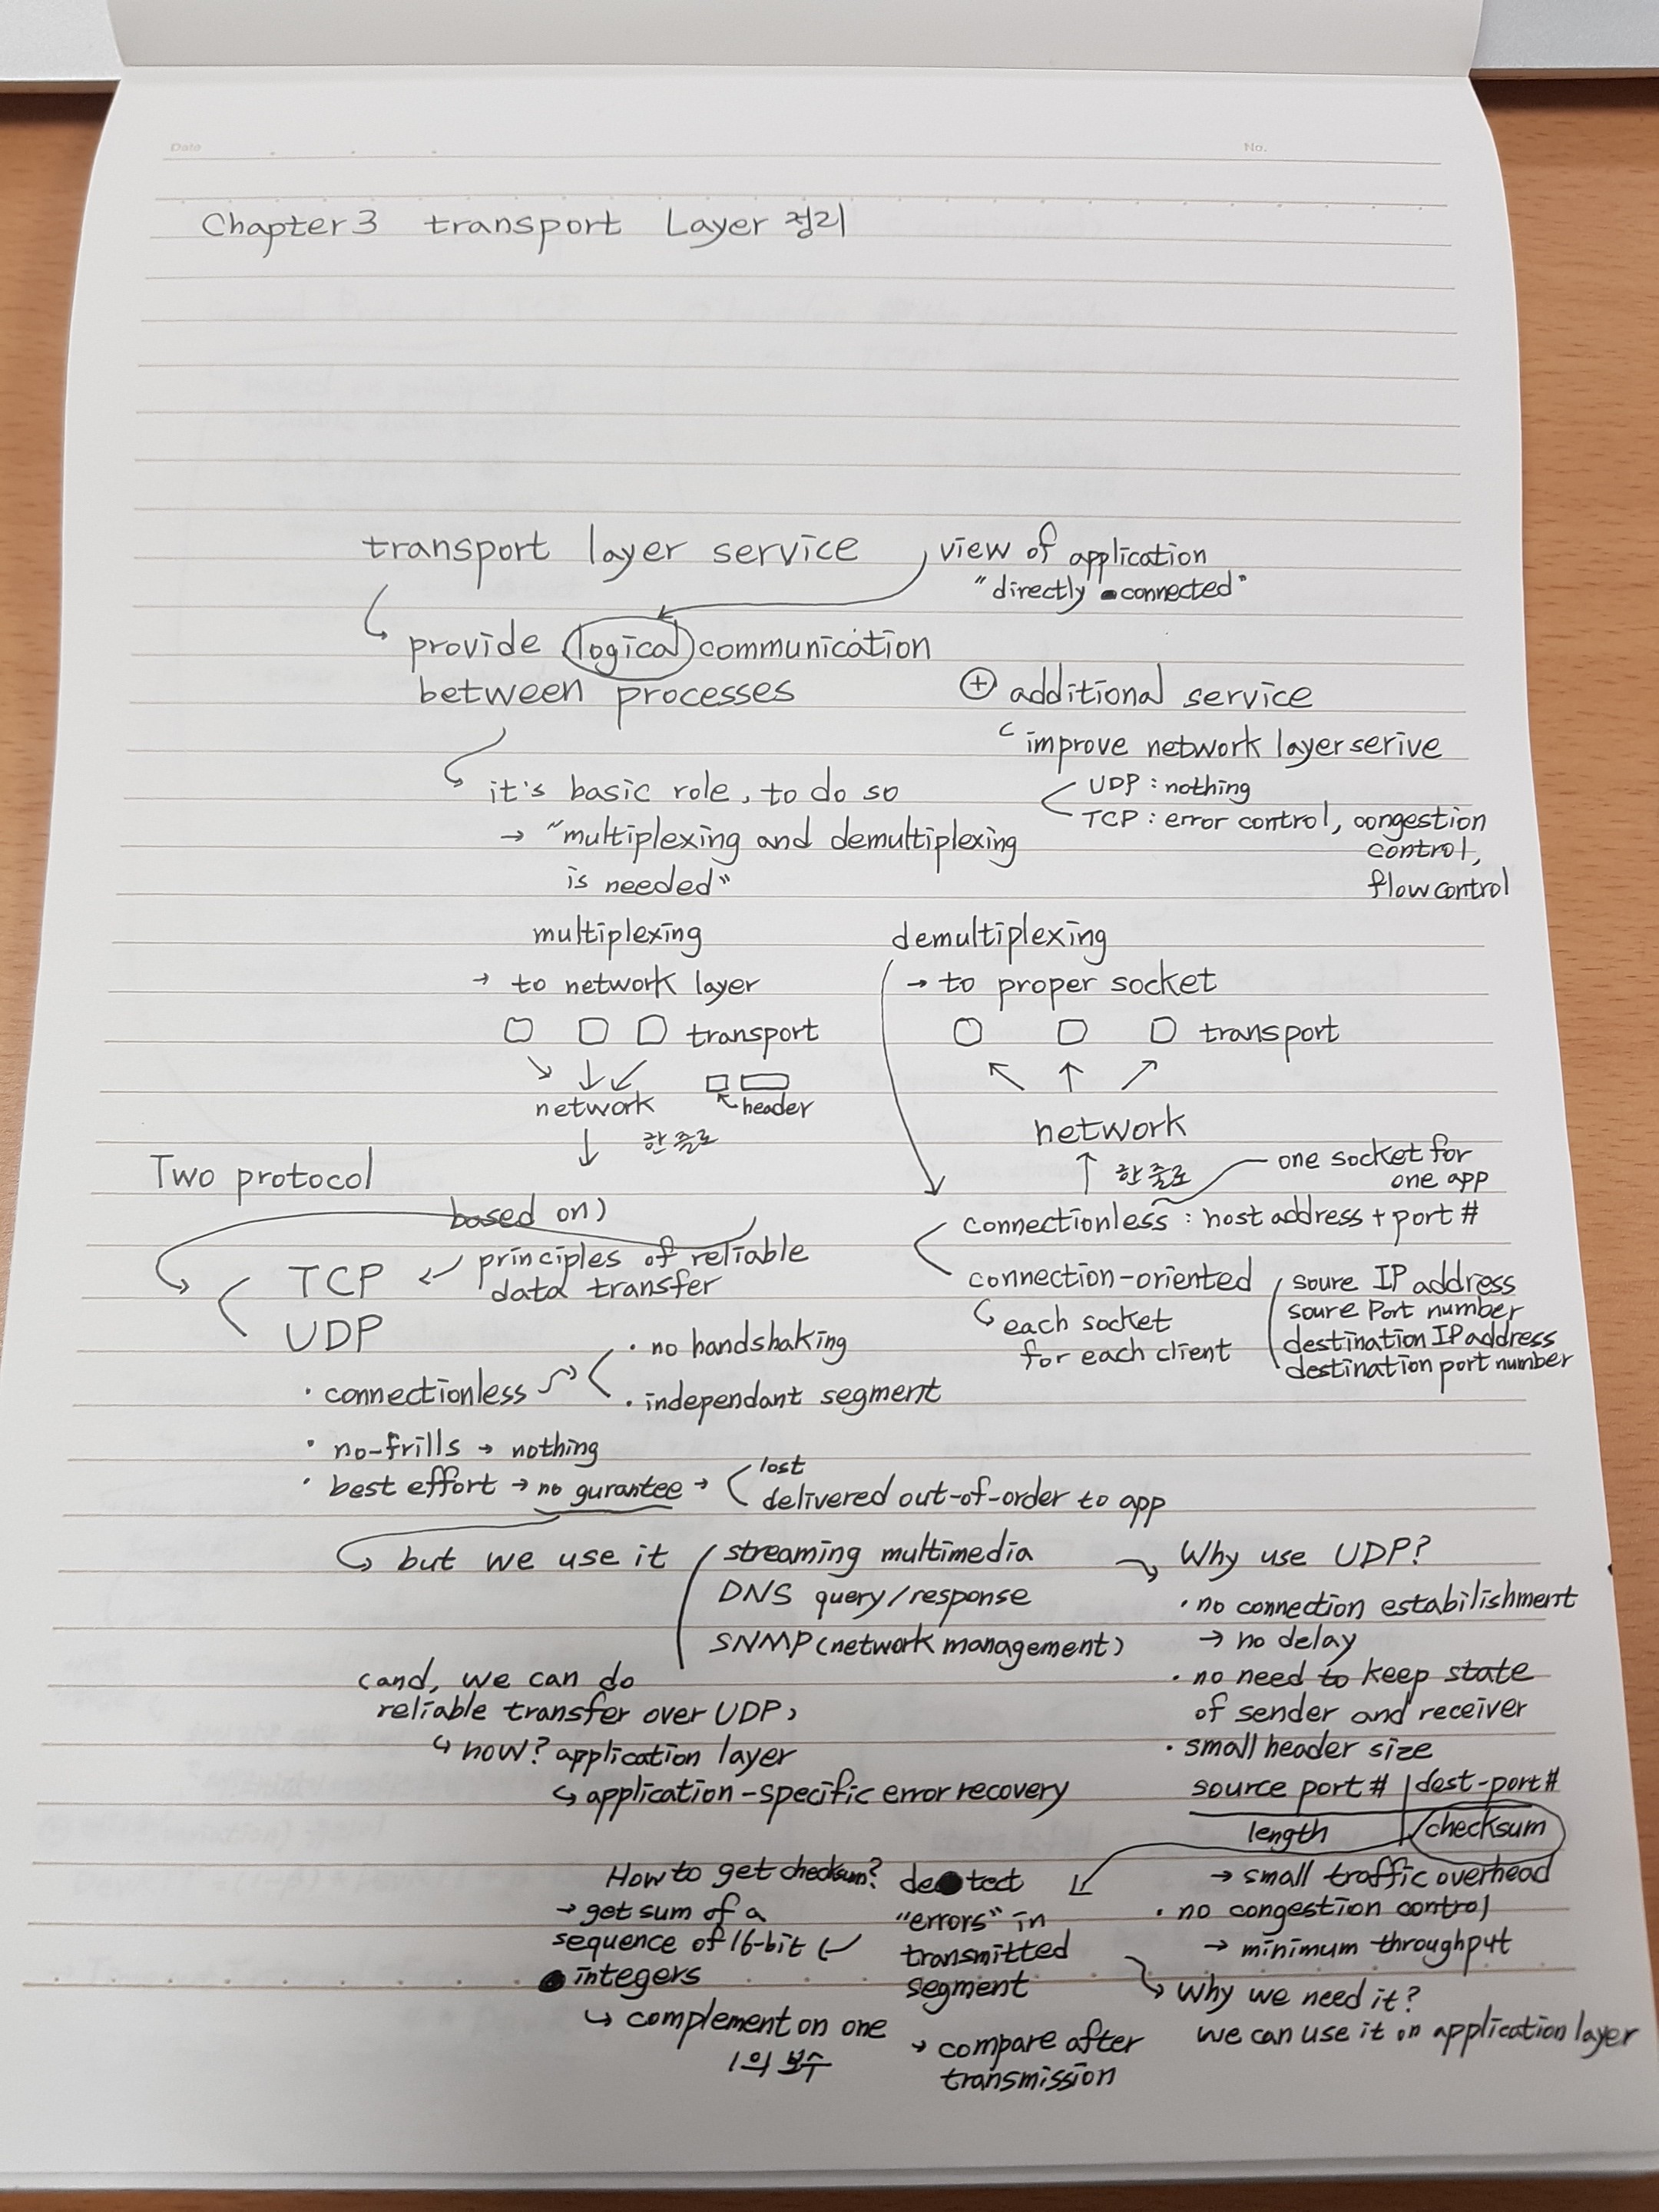 Date
No.
Chapter 3 transport Layer 정리
transport layer service
view of application
"directly connected"
provide logical communication
between processes
⊕ additional service
improve network layer serive
UDP : nothing
TCP : error control, congestion
control,
flow control
it's basic role, to do so
→ "multiplexing and demultiplexing
is needed"
multiplexing
→ to network layer
transport
network
header
한 줄로
demultiplexing
→ to proper socket
transport
network
한 줄로
one socket for
one app
connectionless : host address + port #
connection-oriented
each socket
for each client
soure IP address
soure Port number
destination IP address
destination port number
Two protocol
based on)
TCP
principles of reliable
data transfer
UDP
· connectionless
· no handshaking
· independant segment
· no-frills → nothing
· best effort → no gurantee →
lost
delivered out-of-order to app
but we use it
streaming multimedia
DNS query/response
SNMP (network management)
(and, we can do
reliable transfer over UDP)
how? application layer
application-specific error recovery
Why use UDP?
· no connection estabilishment
→ no delay
· no need to keep state
of sender and receiver
· small header size
source port # | dest-port #
length | checksum
→ small traffic overhead
· no congestion control
→ minimum throughput
Why we need it?
we can use it on application layer
detect
"errors" in
transmitted
segment
→ compare after
transmission
How to get checksum?
→ get sum of a
sequence of 16-bit
integers
complement on one
1의 보수